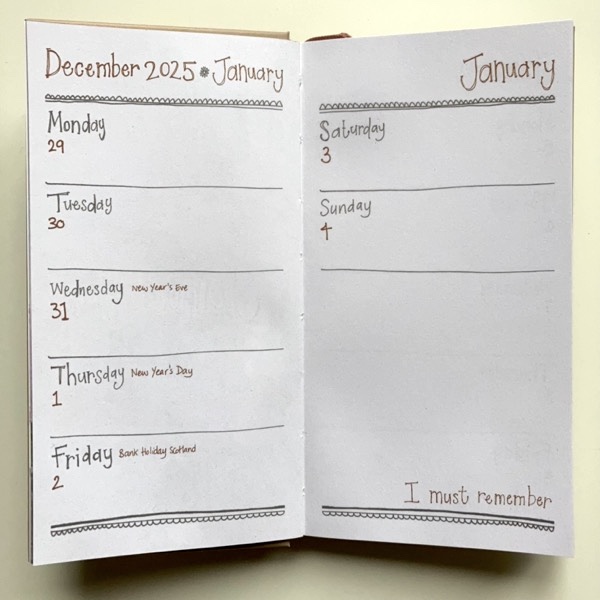 December 2025 * January
Monday
29
Tuesday
30
Wednesday New Year's Eve
31
Thursday New Year's Day
1
Friday Bank Holiday Scotland
2
January
Saturday
3
Sunday
4
I must remember